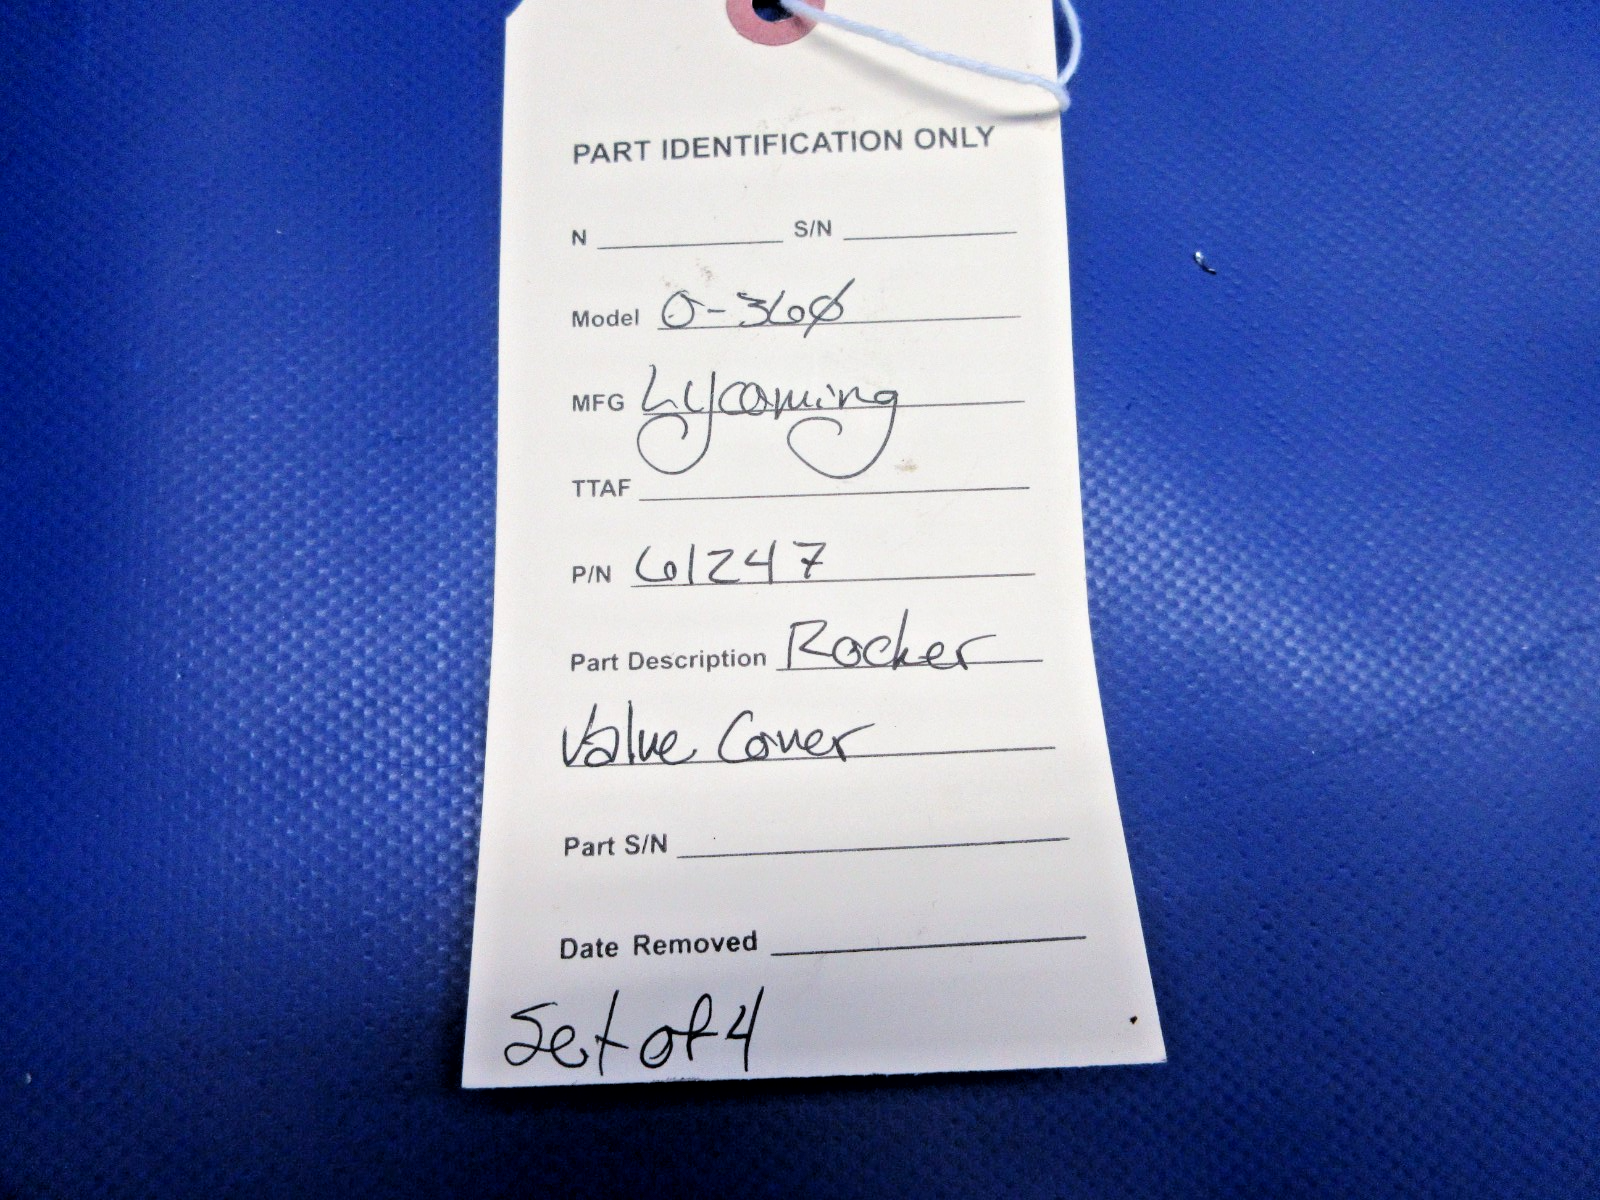 PART IDENTIFICATION ONLY
N S/N
Model O-360
MFG Lycoming
TTAF
P/N 61247
Part Description Rocker
Valve Cover
Part S/N
Date Removed
Set of 4